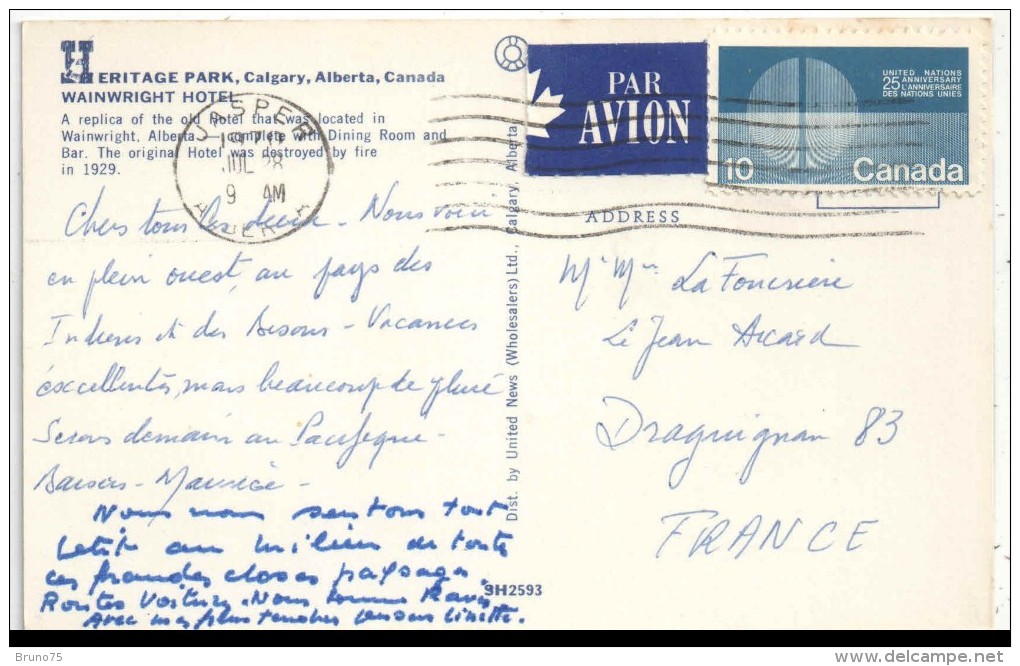 HERITAGE PARK, Calgary, Alberta, Canada
WAINWRIGHT HOTEL
A replica of the old Hotel that was located in
Wainwright, Alberta complete with Dining Room and
Bar. The original Hotel was destroyed by fire
in 1929.
JASPER
1970
JUL 28
9 AM
ALBERTA
PAR
AVION
UNITED NATIONS
25 ANNIVERSARY
L'ANNIVERSAIRE
DES NATIONS UNIES
10 Canada
ADDRESS
Chers tous les deux - Nous voici
en plein ouest, au pays des
Indiens et des Bisons - Vacances
excellentes, mais beaucoup de pluie
Serons demain au Pacifique -
Baisers - Maurice -
Nous nous sentons tout
petit au milieu de toutes
ces grandes choses paysages.
Routes Voitures. Nous sommes Ravis
Avec mes plus tendres Linette.
Dist. by United News (Wholesalers) Ltd., Calgary, Alberta
SH2593
Mr Mme La Fourrière
Le Jean Aicard
Draguignan 83
FRANCE
Bruno75
www.delcampe.net